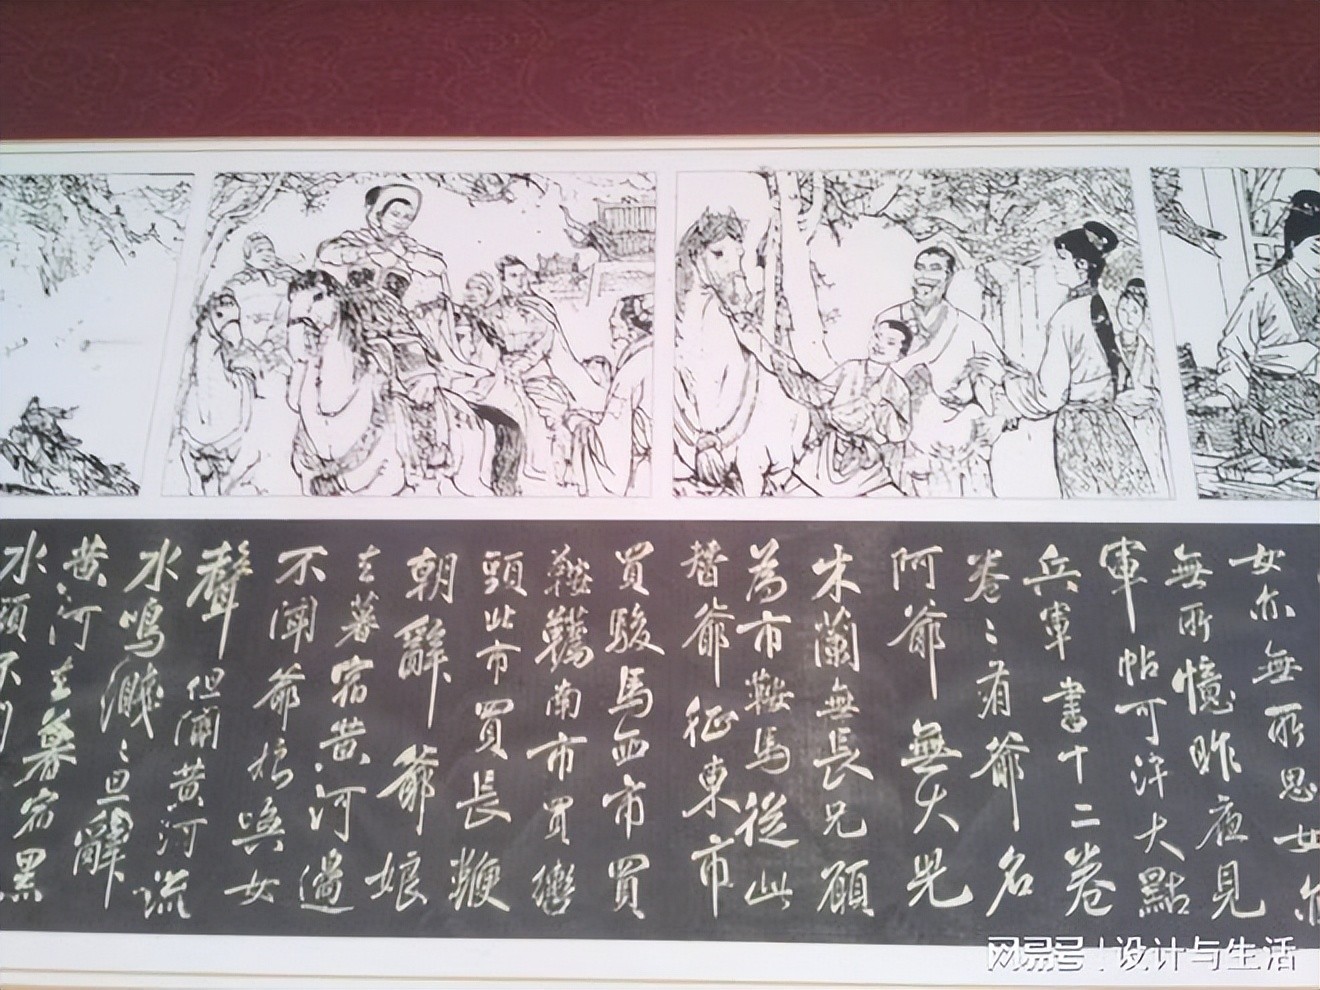 女亦無所思女
無所憶昨夜見
軍帖可汗大點
兵軍書十二卷
卷〻有爺名
阿爺無大兒
木蘭無長兄願
為市鞍馬從此
替爺征東市
買駿馬西市買
鞍韉南市買轡
頭北市買長鞭
朝辭爺娘
去暮宿黄河邊
不聞爺娘喚女
聲但聞黄河流
水鳴濺〻旦辭
黄河去暮宿黑
水頭不
网易号 | 设计与生活